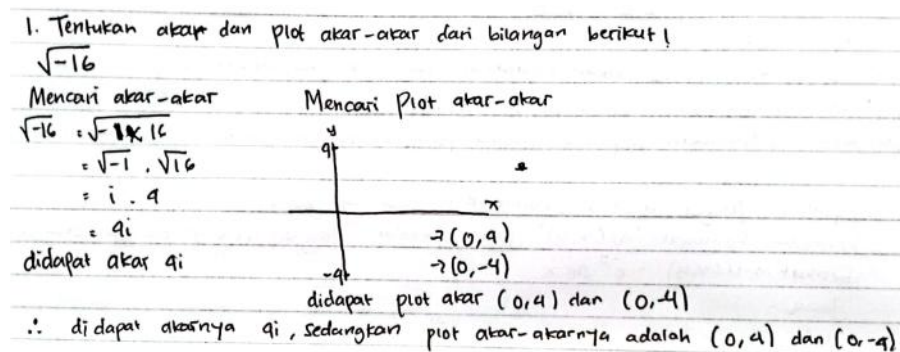 1. Tentukan akar dan plot akar-akar dari bilangan berikut!
√-16
Mencari akar-akar
√-16 = √-1 x 16
= √-1 . √16
= i . 4
= 4i
didapat akar 4i
Mencari Plot akar-akar
y
4
x
→(0,4)
→(0,-4)
-4
didapat plot akar (0,4) dan (0,-4)
∴ didapat akarnya 4i, sedangkan plot akar-akarnya adalah (0,4) dan (0,-4)